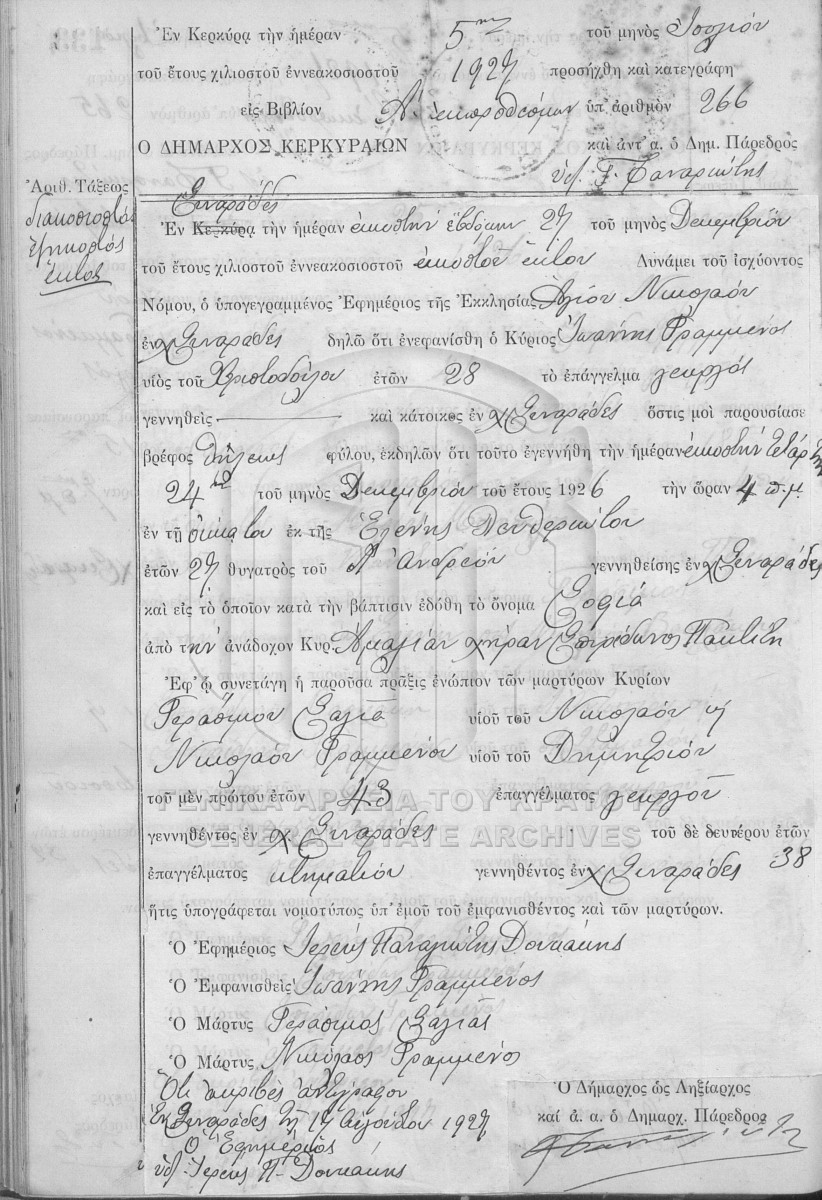 Ἐν Κερκύρᾳ τὴν ἡμέραν 5ην τοῦ μηνὸς Ἰουλίου
τοῦ ἔτους χιλιοστοῦ ἐννεακοσιοστοῦ 1927 προσήχθη καὶ κατεγράφη
εἰς Βιβλίον Α ἐκπροθέσμων ὑπ' ἀριθμὸν 266
Ο ΔΗΜΑΡΧΟΣ ΚΕΡΚΥΡΑΙΩΝ καὶ ἀντ' α. ὁ Δημ. Πάρεδρος
Ἀριθ. Τάξεως
διακοσιοστός
ἑξηκοστός
ἕκτος
Σιναράδες
Ἐν Κερκύρᾳ τὴν ἡμέραν εἰκοστὴν ἑβδόμην 27 τοῦ μηνὸς Δεκεμβρίου
τοῦ ἔτους χιλιοστοῦ ἐννεακοσιοστοῦ εἰκοστοῦ ἕκτου Δυνάμει τοῦ ἰσχύοντος
Νόμου, ὁ ὑπογεγραμμένος Ἐφημέριος τῆς Ἐκκλησίας Ἁγίου Νικολάου
ἐν χ Σιναράδες δηλῶ ὅτι ἐνεφανίσθη ὁ Κύριος Ἰωάννης Γραμμένος
υἱὸς τοῦ Χριστοδούλου ἐτῶν 28 τὸ ἐπάγγελμα γεωργός
γεννηθεὶς καὶ κάτοικος ἐν χ Σιναράδες ὅστις μοὶ παρουσίασε
βρέφος θήλεως φύλου, ἐκδηλῶν ὅτι τοῦτο ἐγεννήθη τὴν ἡμέραν εἰκοστὴν τετάρτην
24ην τοῦ μηνὸς Δεκεμβρίου τοῦ ἔτους 1926 τὴν ὥραν 4 π.μ
ἐν τῇ οἰκίᾳ του ἐκ τῆς Ἑλένης
ἐτῶν 27 θυγατρὸς τοῦ Ἀνδρέου γεννηθείσης ἐν χ Σιναράδες
καὶ εἰς τὸ ὁποῖον κατὰ τὴν βάπτισιν ἐδόθη τὸ ὄνομα Σοφία
ἀπὸ τὴν ἀνάδοχον Κυρ. Ἀμαλίαν χήραν Σπυρίδωνος
Ἐφ' ᾧ συνετάγη ἡ παροῦσα πρᾶξις ἐνώπιον τῶν μαρτύρων Κυρίων
Γεράσιμου Σαλιᾶ υἱοῦ τοῦ Νικολάου
Νικολάου Γραμμένου υἱοῦ τοῦ Δημητρίου
τοῦ μὲν πρώτου ἐτῶν 43 ἐπαγγέλματος γεωργοῦ
ΓΕΝΙΚΑ ΑΡΧΕΙΑ ΤΟΥ ΚΡΑΤΟΥΣ
GENERAL STATE ARCHIVES
γεννηθέντος ἐν χ. Σιναράδες τοῦ δὲ δευτέρου ἐτῶν 38
ἐπαγγέλματος κτηματίου γεννηθέντος ἐν χ Σιναράδες
ἥτις ὑπογράφεται νομοτύπως ὑπ' ἐμοῦ τοῦ ἐμφανισθέντος καὶ τῶν μαρτύρων.
Ὁ Ἐφημέριος Ἱερεὺς Παναγιώτης Δουκάκης
Ὁ Ἐμφανισθεὶς Ἰωάννης Γραμμένος
Ὁ Μάρτυς Γεράσιμος Σαλιᾶς
Ὁ Μάρτυς Νικόλαος Γραμμένος
Ὅτι ἀκριβὲς ἀντίγραφον
Ἐν Σιναράδες τῇ 17 Αὐγούστου 1927
Ὁ Ἐφημέριος
ὑπ. Ἱερεὺς Π. Δουκάκης
Ὁ Δήμαρχος ὡς Ληξίαρχος
καὶ ἀ. α. ὁ Δημαρχ. Πάρεδρος